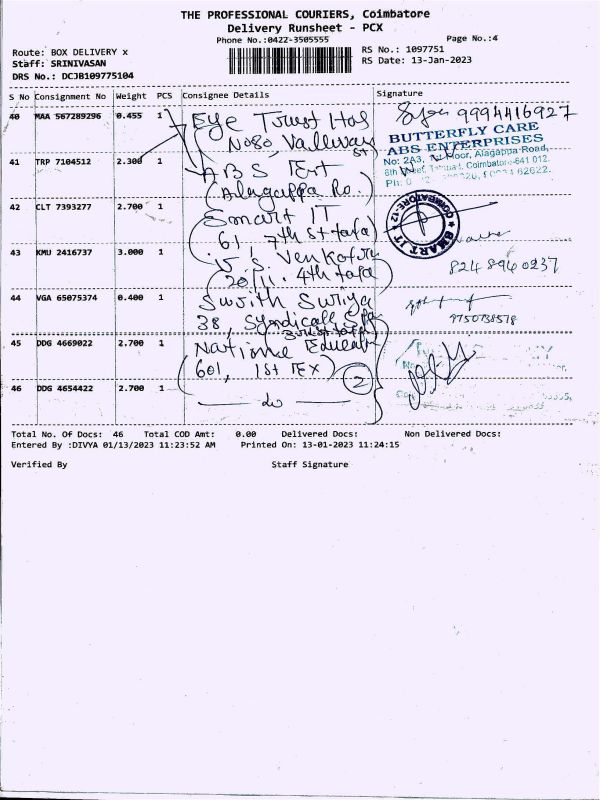 THE PROFESSIONAL COURIERS, Coimbatore
Delivery Runsheet - PCX
Phone No.:0422-3505555
Page No.:4
Route: BOX DELIVERY x
RS No.: 1097751
Staff: SRINIVASAN
RS Date: 13-Jan-2023
DRS No.: DCJB109775104
S No Consignment No Weight PCS Consignee Details Signature
40 MAA 567289296 0.455 1 Eye Trust Hos 9994416927
No 80, Valluvar St
BUTTERFLY CARE
ABS ENTERPRISES
No: 2A3, 1st Floor, Alagappa Road,
Coimbatore-641 012.
41 TRP 7104512 2.300 1 ABS
(Alagappa Ro.)
42 CLT 7393277 2.700 1 Smart IT
61, 7th St tata
SMART IT COIMBATORE-12
43 KMU 2416737 3.000 1 V. S.
20/11. 4th tata
824 8940237
44 VGA 65075374 0.400 1
38, Syndicate
9750738578
45 DDG 4669022 2.700 1 National
601, 1st TEX) 2
46 DDG 4654422 2.700 1 — do —
Total No. Of Docs: 46 Total COD Amt: 0.00 Delivered Docs: Non Delivered Docs:
Entered By :DIVYA 01/13/2023 11:23:52 AM Printed On: 13-01-2023 11:24:15
Verified By Staff Signature